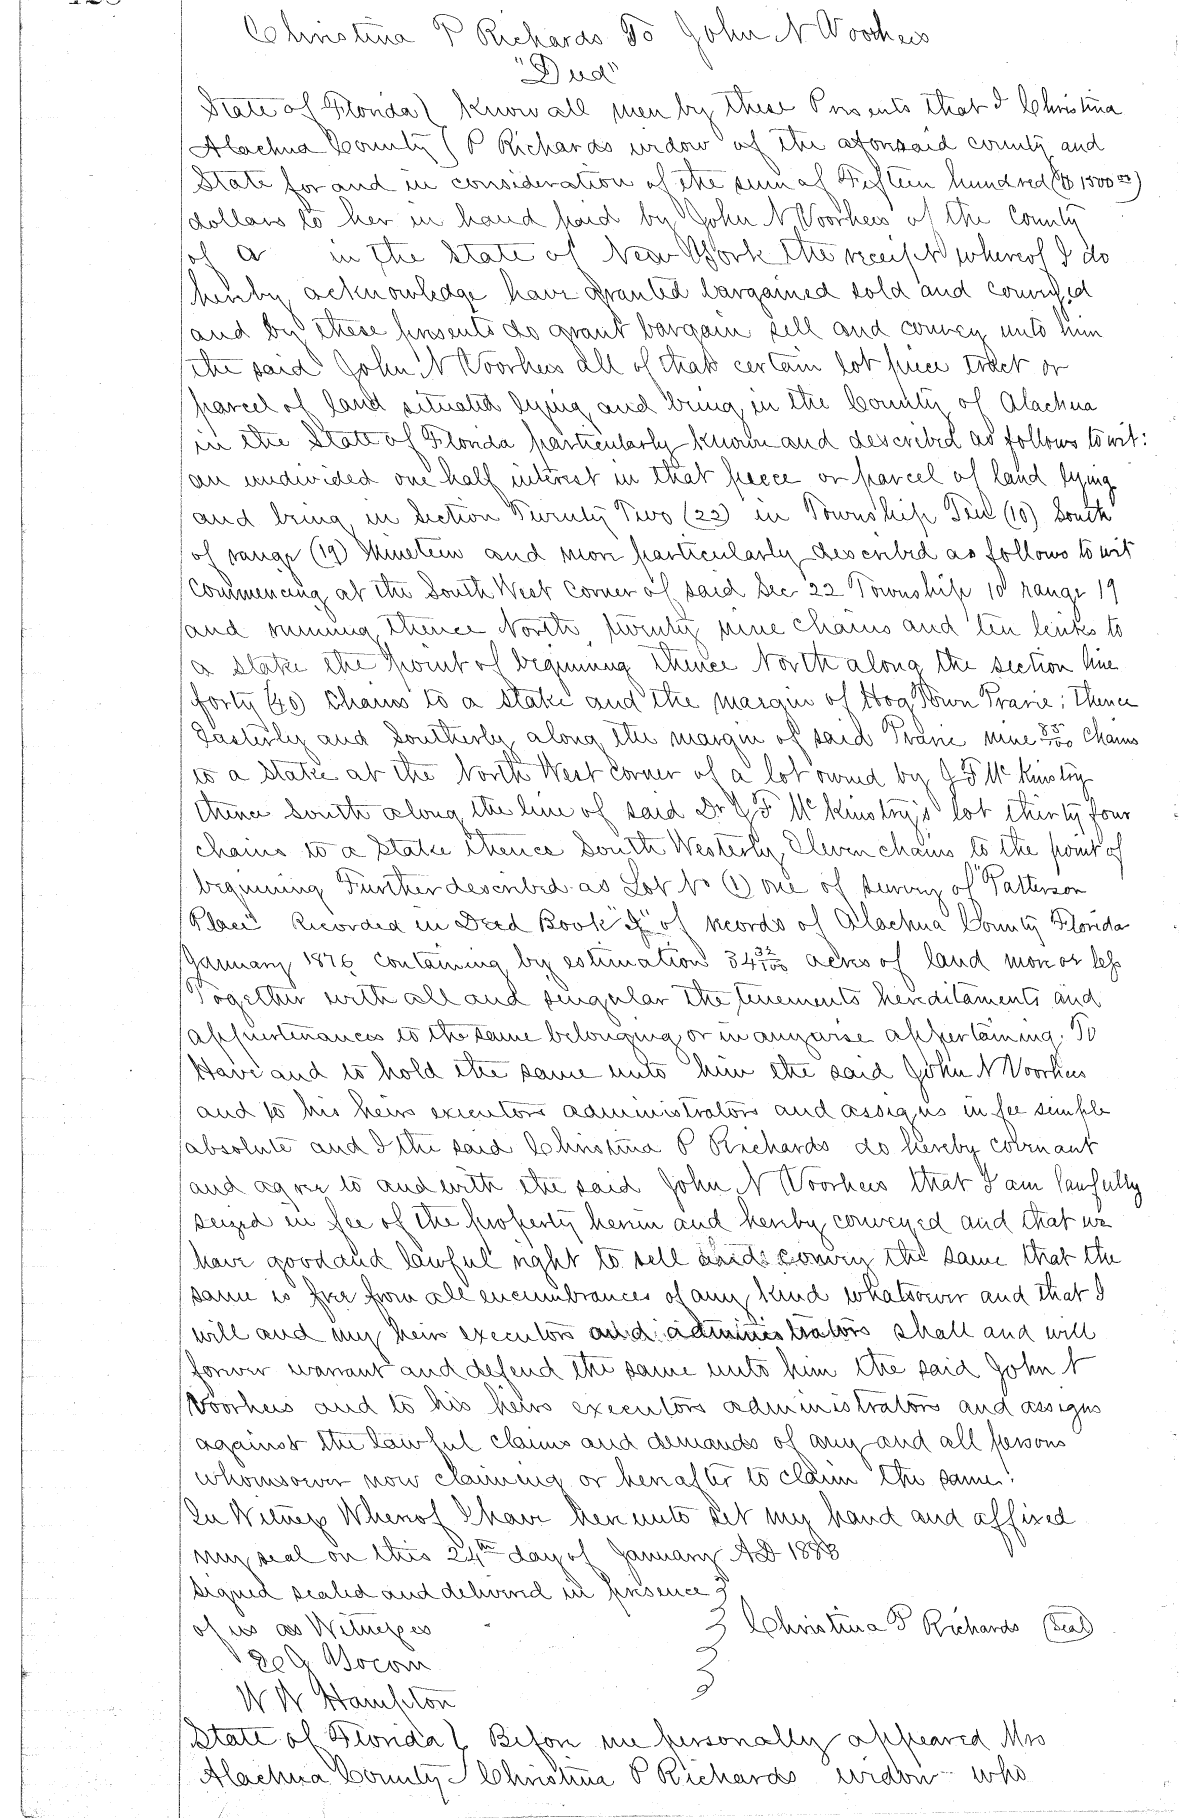 Christina P Richards To John N Voorheis
"Deed"
State of Florida } Know all men by these Presents that I Christina
Alachua County } P Richards widow of the aforesaid county and
State for and in consideration of the sum of Fifteen hundred ($1500 00)
dollars to her in hand paid by John N Voorheis of the County
of a in the State of New York the receipt whereof I do
hereby acknowledge have granted bargained sold and conveyed
and by these presents do grant bargain sell and convey unto him
the said John N Voorheis all of that certain lot piece tract or
parcel of land situated lying and being in the County of Alachua
in the State of Florida particularly known and described as follows to wit:
an undivided one half interest in that peece or parcel of land lying
and being in Section Twenty Two (22) in Township Ten (10) South
of range (19) Nineteen and more particularly described as follows to wit
Commencing at the South West Corner of said Sec 22 Township 10 range 19
and running thence North twenty nine chains and ten links to
a stake the point of beginning thence North along the section line
forty (40) Chains to a stake and the margin of Hog Town Prarie; thence
Easterly and Southerly along the margin of said Prarie nine 85/100 Chains
to a stake at the North West corner of a lot owned by J F McKinstry
thence South along the line of said Dr J F McKinstry's lot thirty four
chains to a stake thence South Westerly Eleven chains to the point of
beginning Further described as Lot No (1) one of survey of "Patterson
Place" Recorded in Deed Book of records of Alachua County Florida
January 1876 containing by estimation 34 32/100 acres of land more or less
Together with all and singular the tenements hereditaments and
appurtenances to the same belonging or in anywise appertaining. To
Have and to hold the same unto him the said John N Voorheis
and to his heirs executors administrators and assigns in fee simple
absolute and I the said Christina P Richards do hereby covenant
and agree to and with the said John N Voorheis that I am lawfully
seized in fee of the property herein and hereby conveyed and that we
have good and lawful right to sell and convey the same that the
same is free from all encumbrances of any kind whatsoever and that I
will and my heirs executors and administrators shall and will
forever warrant and defend the same unto him the said John N
Voorheis and to his heirs executors administrators and assigns
against the lawful claims and demands of any and all persons
whomsoever now claiming or hereafter to claim the same.
In Witness Whereof I have hereunto set my hand and affixed
my seal on this 24th day of January AD 1883
Signed sealed and delivered in presence }
of us as Witnesses } Christina P Richards (Seal)
Yocom
W W Hampton
State of Florida } Before me personally appeared Mrs
Alachua County } Christina P Richards widow who